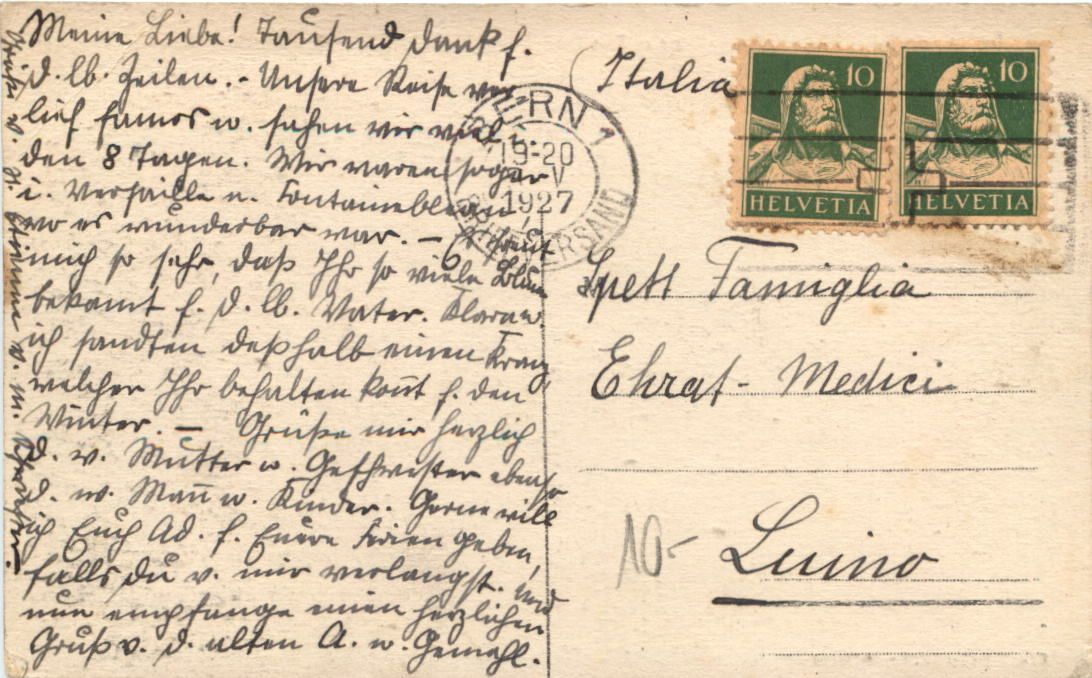 Meine Liebe! Tausend Dank f.
d. lb. Zeilen. - Unsere Reise ver
lief famos u. sahen wir viel
den 8 Tagen. Wir waren sogar
i. Versaille u. Fontainebleau
wo es wunderbar war. - Es freut
mich so sehr, daß Ihr so viele Blum
bekamt f. d. lb. Vater. Klara u.
ich sandten deßhalb einen Kranz,
welcher Ihr behalten kont f. den
Winter. - Grüße mir herzlich
d. w. Mutter u. Geschwister ebenso
d. w. Mañ u. Kinder. Gerne will
ich Euch Ad. f. Euere Ferien geben,
falls Du v. mir verlangst. Und
nun empfange einen herzlichen
Gruß v. d. alten A. u. Gemahl.
v. m.
BERN 1
19-20
V
1927
BRIEFVERSAND
10
HELVETIA
10
HELVETIA
Italia
Spett Famiglia
Ehrat - Medici
Luino
10-